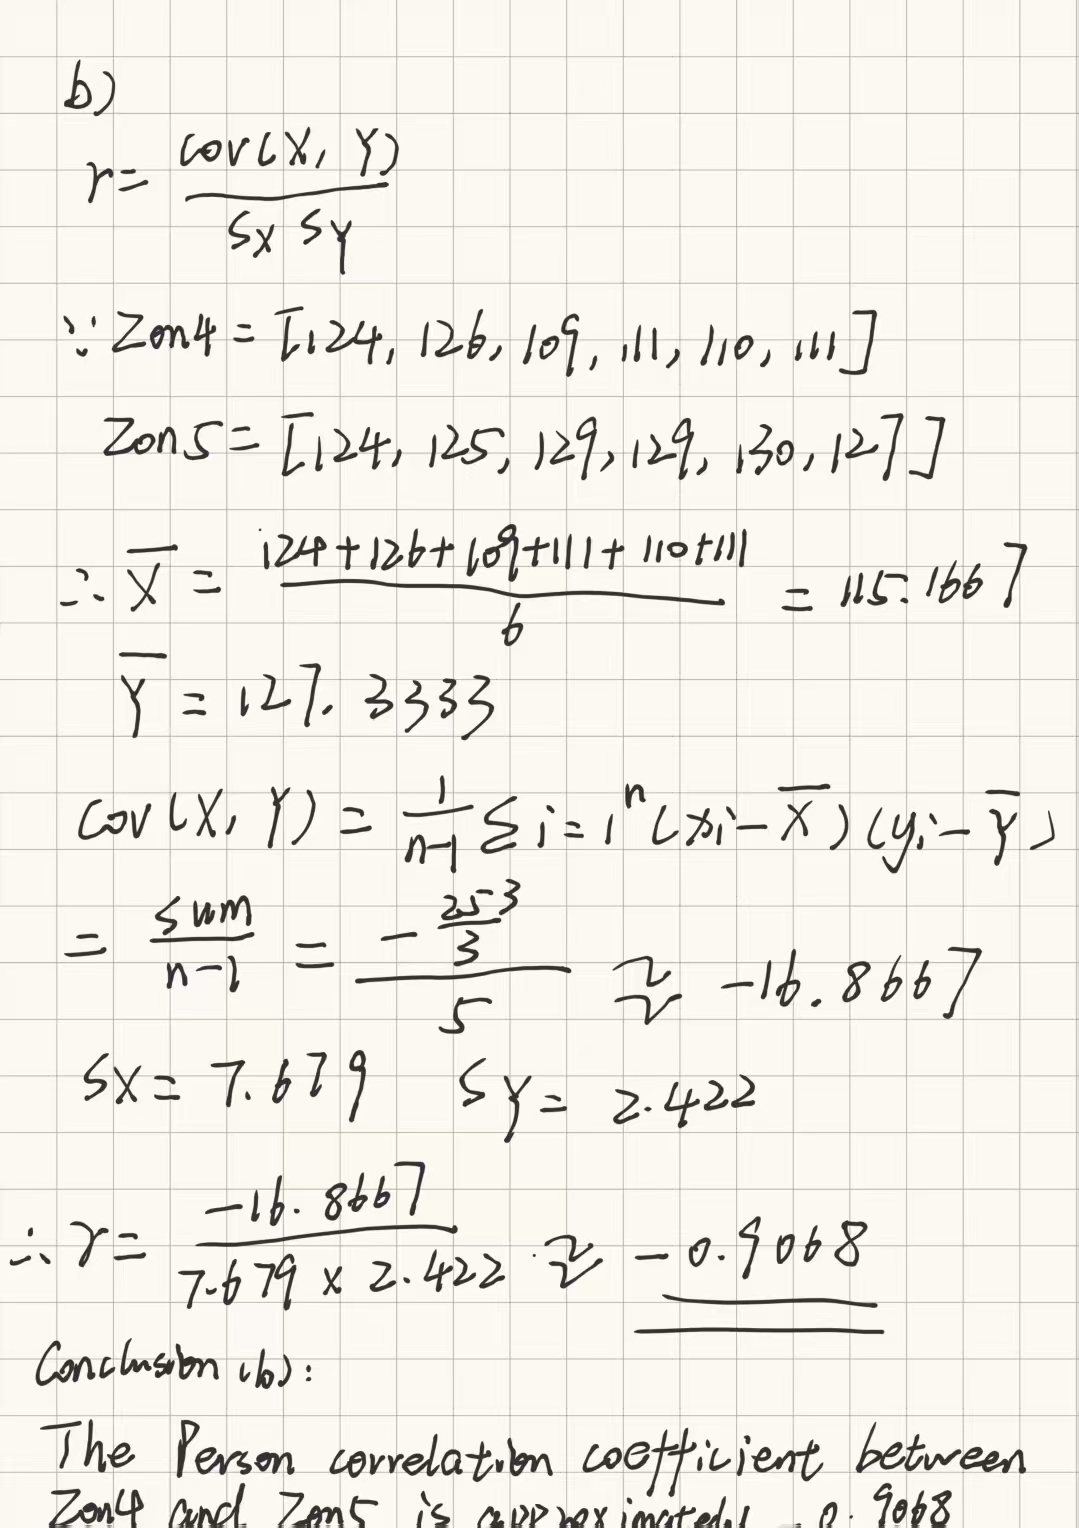 b)
r = cov(X, Y) / SX SY
∵ Zon4 = [124, 126, 109, 111, 110, 111]
Zon5 = [124, 125, 129, 129, 130, 127]
∴ X̄ = (124+126+109+111+110+111) / 6 = 115.1667
Ȳ = 127.3333
Cov(X, Y) = 1/(n-1) Σ i=1^n (xi - X̄)(yi - Ȳ)
= sum/(n-1) = (-253/3) / 5 ≈ -16.8667
SX = 7.679 SY = 2.422
∴ r = -16.8667 / (7.679 × 2.422) ≈ -0.9068
Conclusion (b):
The Person correlation coefficient between
Zon4 and Zon5 is approximately -0.9068